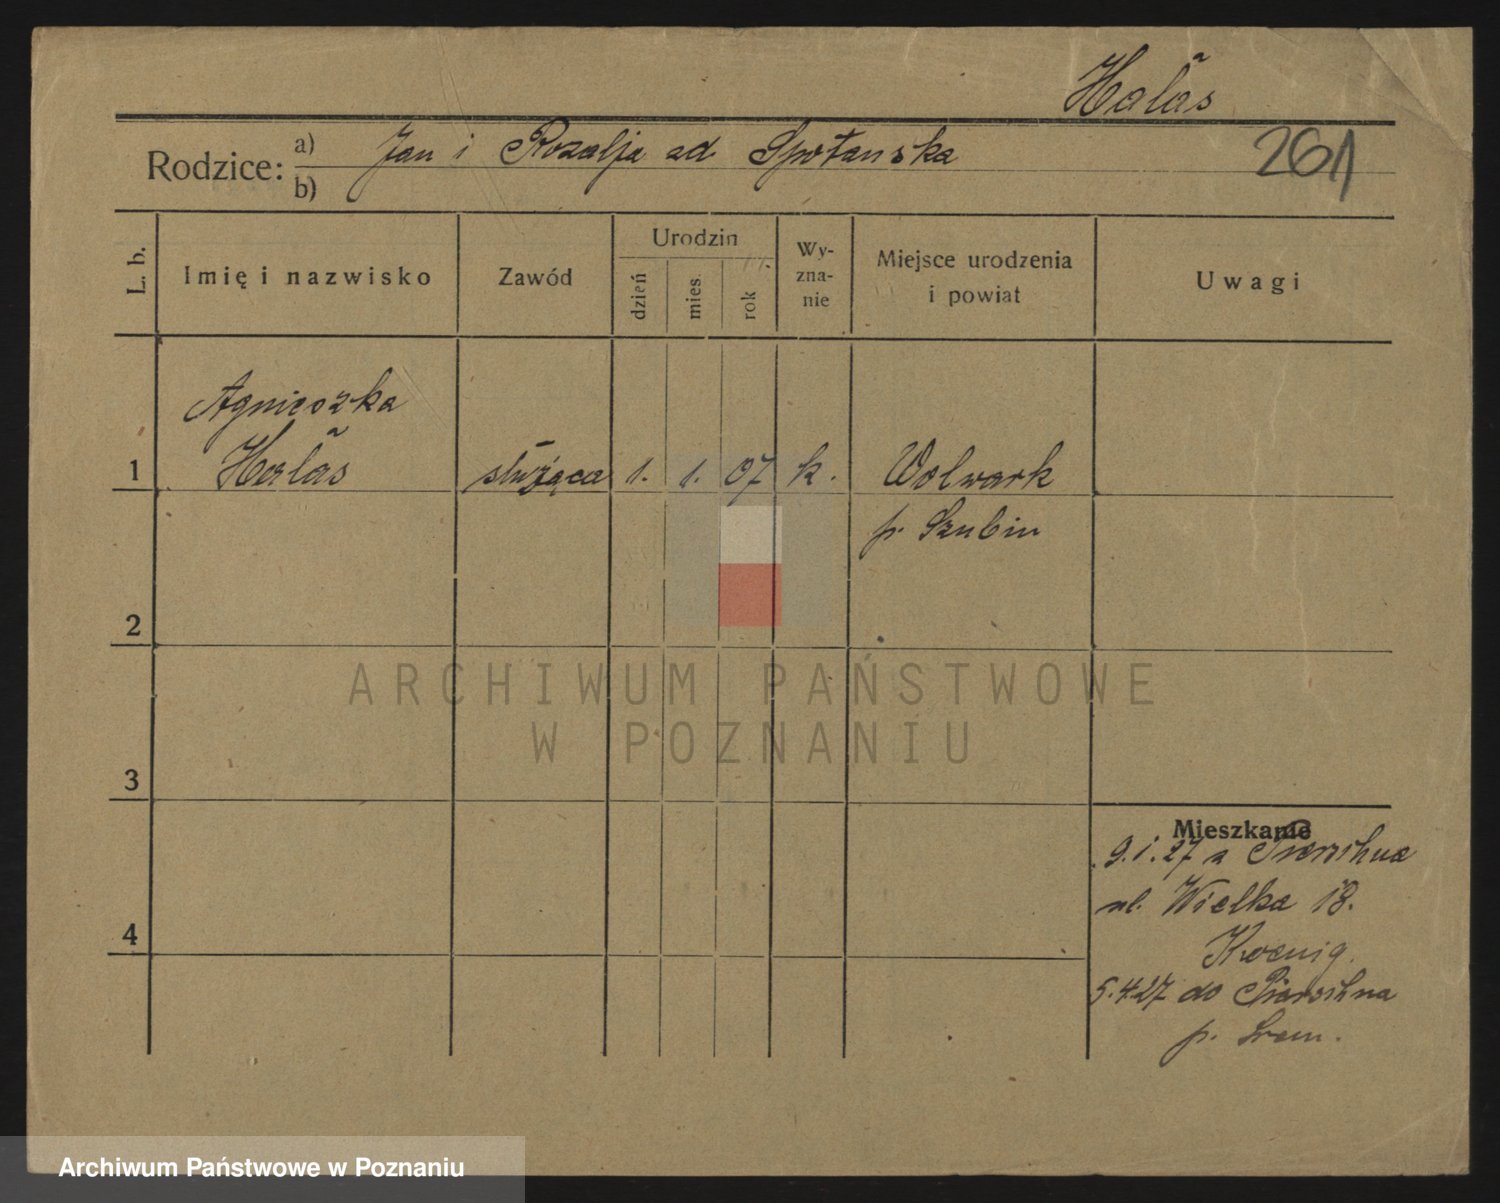 Hałas
261
Rodzice: a) Jan i Rozalja zd Spotanska
b)
L. b.
Imię i nazwisko
Zawód
Urodzin
dzień
mies.
rok
Wy-
zna-
nie
Miejsce urodzenia
i powiat
Uwagi
Agnieszka
1 Hałas służąca 1. 1. 07 k. Wolwark
p. Szubin
2
3
4
Mieszkanie
9.1.27 z
ul. Wielka 18.
Koenig.
5.4.27 do
p. Srem.
ARCHIWUM PAŃSTWOWE
W POZNANIU
Archiwum Państwowe w Poznaniu